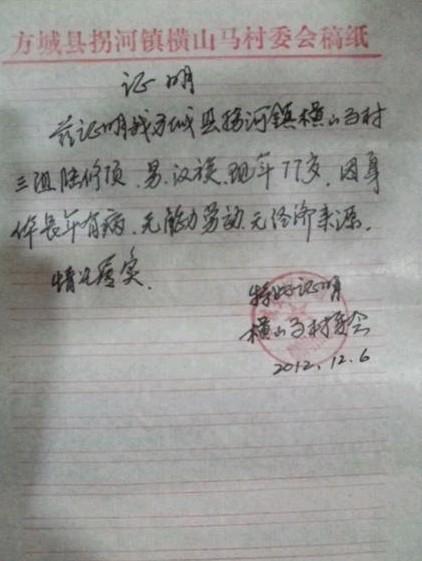 方城县拐河镇横山马村委会稿纸
证明
兹证明我方城县拐河镇横山马村
三组陆修顶、男、汉族、现年77岁，因身
体长年有病、无能力劳动、无经济来源。
情况属实、
特此证明
横山马村委会
2012.12.6